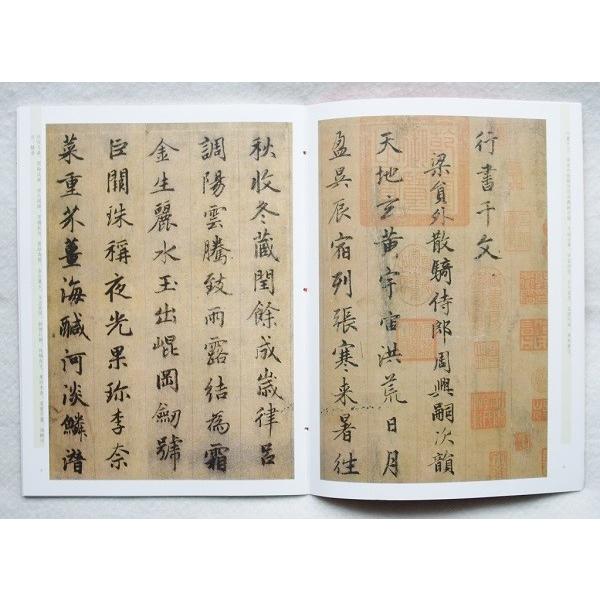 行書千文
梁貟外散騎侍郎周興嗣次韻
天地玄黃宇宙洪荒日月
盈昃辰宿列張寒来暑往
秋收冬藏閏餘成歲律呂
調陽雲騰致雨露結為霜
金生麗水玉出崐岡劒號
巨闕珠稱夜光果珍李柰
菜重芥薑海醎河淡鱗潛